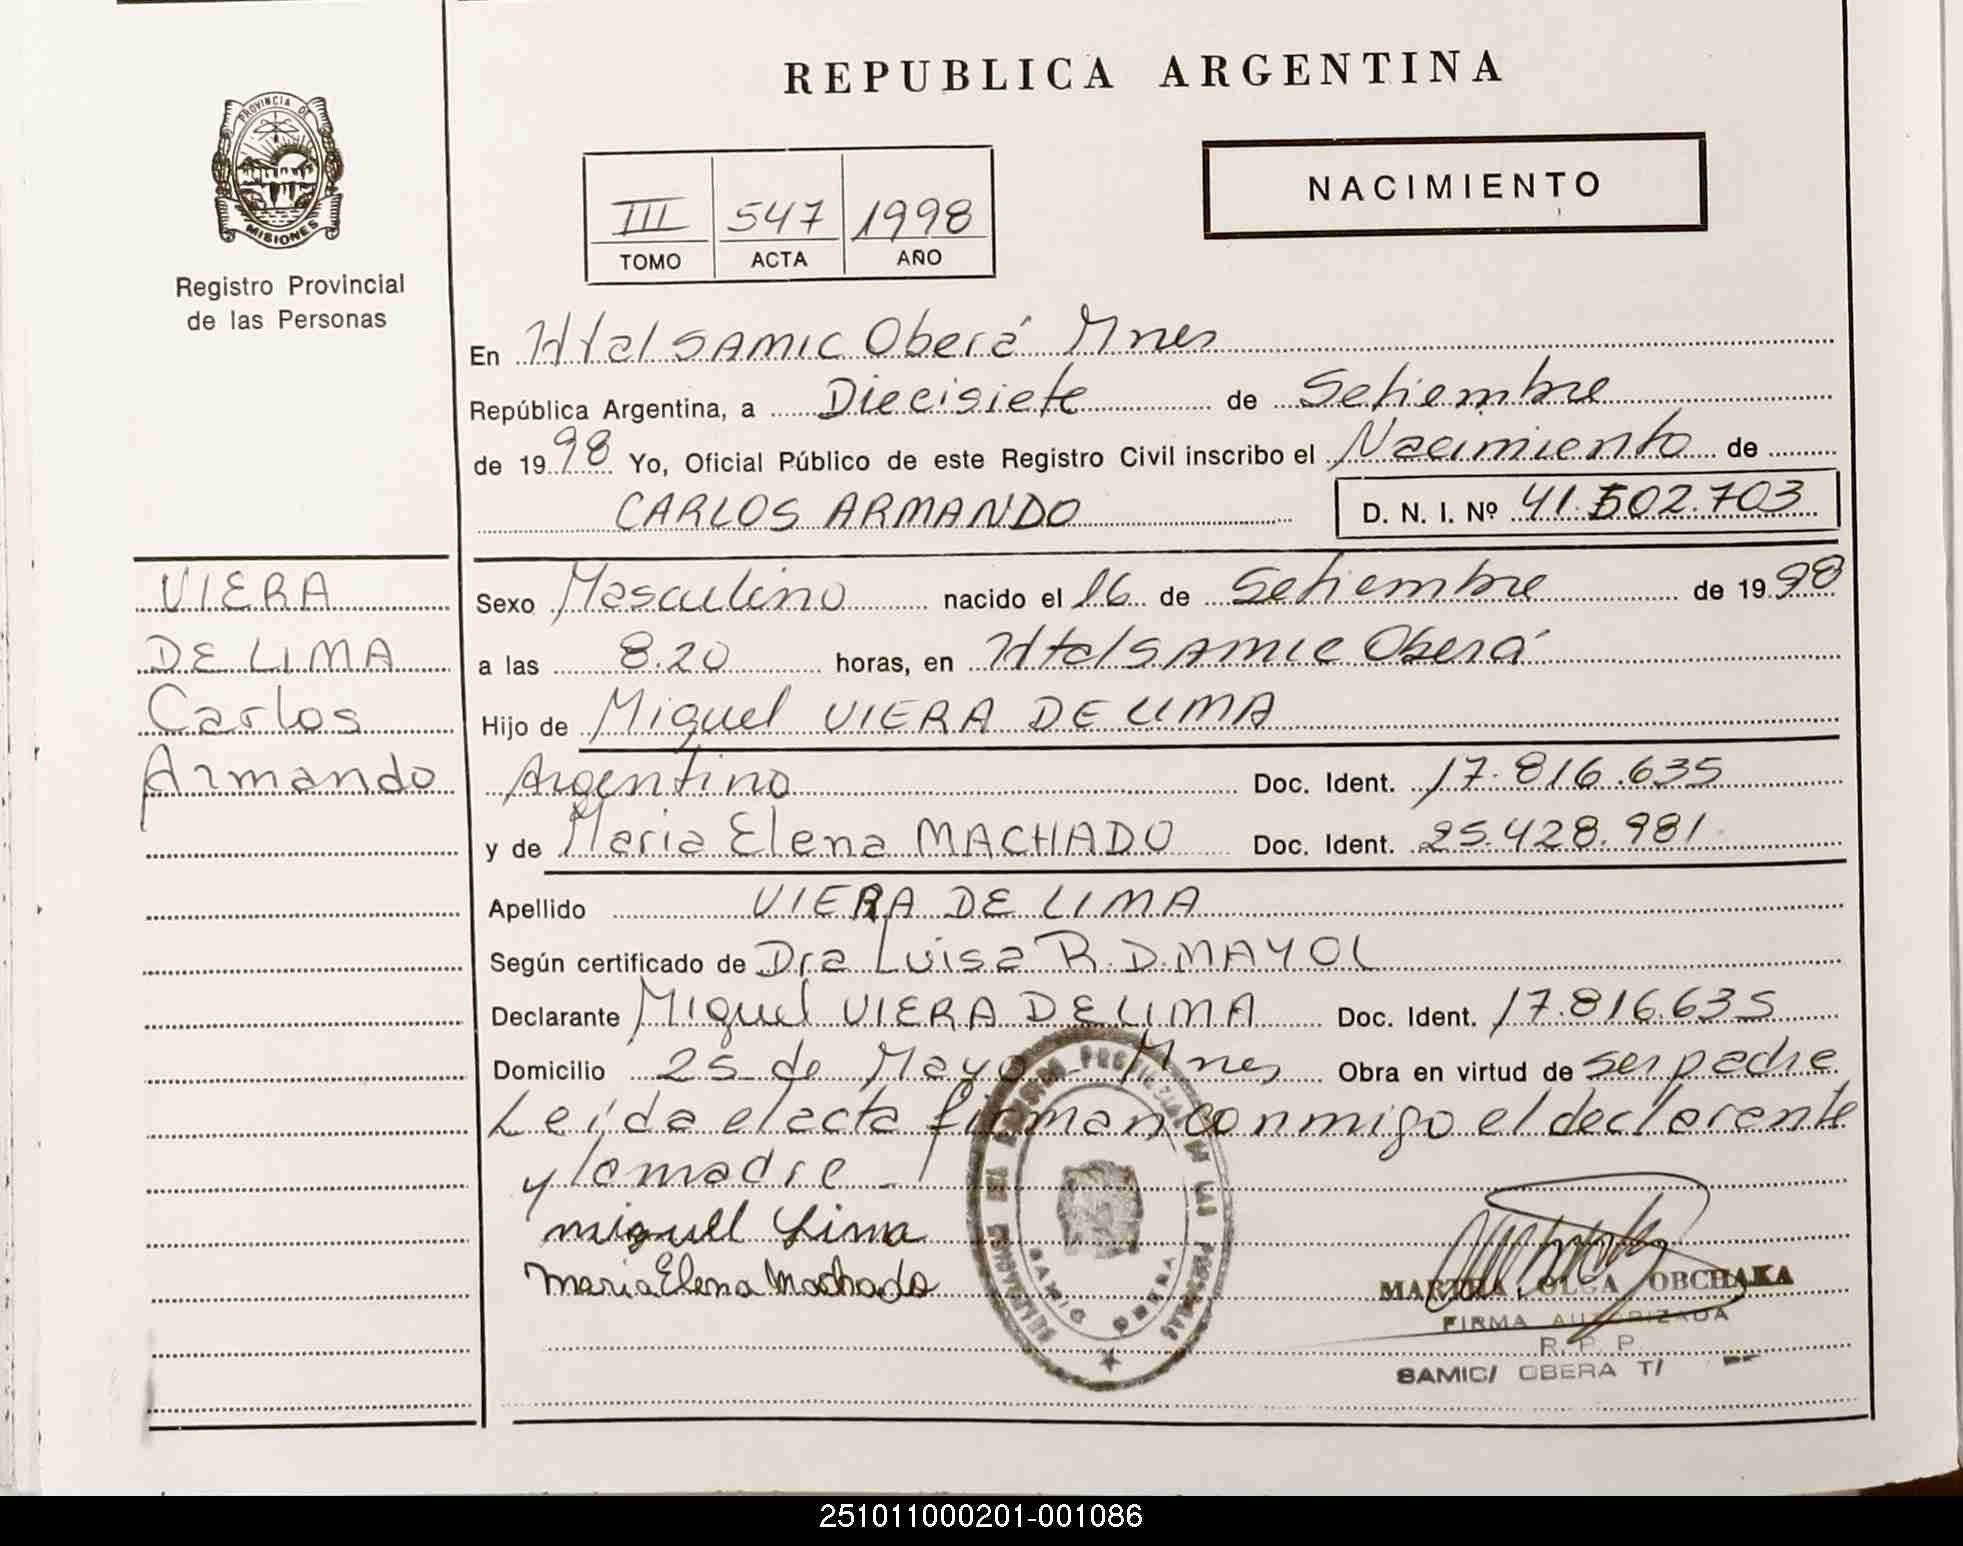 REPUBLICA ARGENTINA
PROVINCIA DE
MISIONES
Registro Provincial
de las Personas
III 547 1998
TOMO ACTA AÑO
NACIMIENTO
En Htal SAMIC Oberá Mnes
República Argentina, a Diecisiete de Setiembre
de 1998 Yo, Oficial Público de este Registro Civil inscribo el Nacimiento de
CARLOS ARMANDO D. N. I. Nº 41.502.703
VIERA
DE LIMA
Carlos
Armando
Sexo Masculino nacido el 16 de Setiembre de 1998
a las 8.20 horas, en Htal SAMIC Oberá
Hijo de Miguel VIERA DE LIMA
Argentino Doc. Ident. 17.816.635
y de Maria Elena MACHADO Doc. Ident. 25.428.981
Apellido VIERA DE LIMA
Según certificado de Dra Luisa R.D.MAYOL
Declarante Miguel VIERA DE LIMA Doc. Ident. 17.816.635
Domicilio 25 de Mayo - Mnes Obra en virtud de ser padre
Leída el acta firman conmigo el declarante
y la madre -
miguel Lima
Maria Elena Machado
SAMIC OBERA
MARTHA OLGA OBCHAKA
FIRMA AUTORIZADA
R. P. P.
SAMIC/ OBERA T/
251011000201-001086